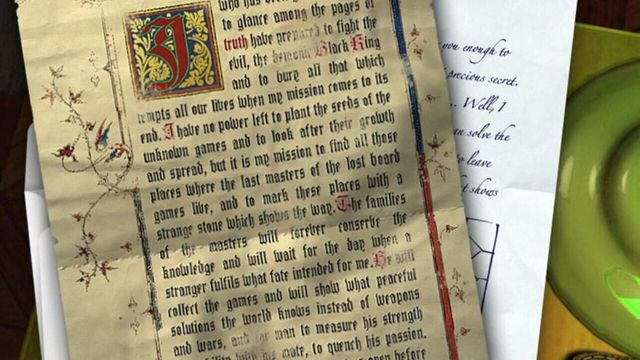 who has
to glance among the pages of
truth have prepared to fight the
evil, the demonic Black King
and to bury all that which
tempts all our lives when my mission comes to its
end. I have no power left to plant the seeds of the
unknown games and to look after their growth
and spread, but it is my mission to find all those
places where the last masters of the lost board
games live, and to mark these places with a
strange stone which shows the way. The families
of the masters will forever conserve the
knowledge and will wait for the day when a
stranger fulfils what fate intended for me. He will
collect the games and will show what peaceful
solutions the world knows instead of weapons
and wars, and for man to measure his strength
with his mate, to quench his passion.
open before
you enough to
precious secret.
... Well, I
can solve the
to leave
shows